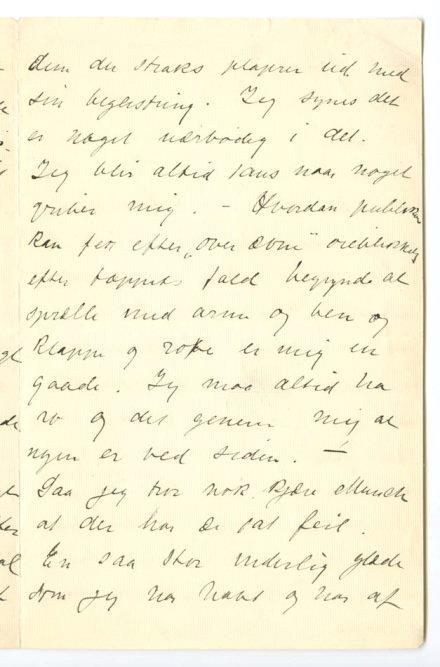 dem der straks plaprer ud med
sin begeistring. Jeg synes det
er noget uærbødig i det.
Jeg blir altid taus naar noget
griber mig. – Hvordan publikum
kan for efter „over ævne" øieblikkelig
efter tæppets fald begynde at
sprælle med arme og ben og
klappe og rope er mig en
gaade. Jeg maa altid ha
ro og det generer mig at
nogen er ved siden. –
Saa jeg tror nok kjære Munch
at der har De tat feil.
En saa stor inderlig glæde
som jeg har havt og har af